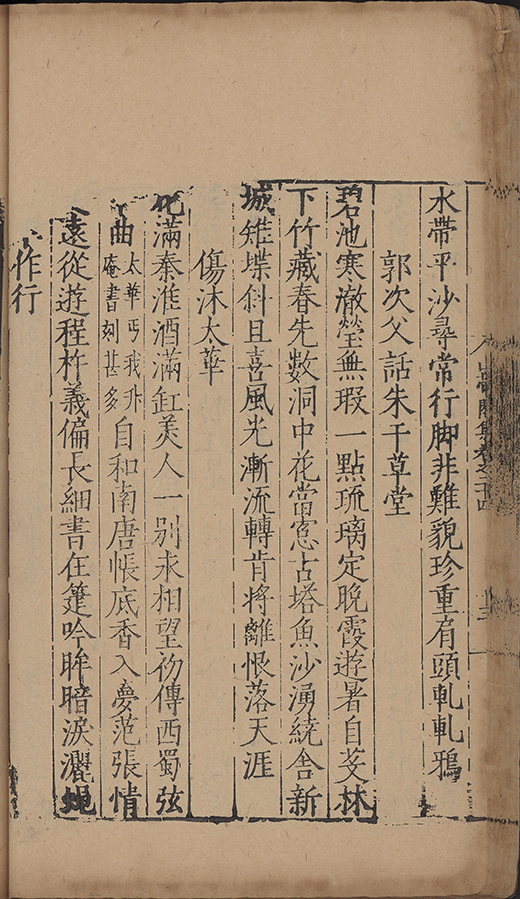 水帶平沙尋常行脚非難貌珍重肩頭軋軋鴉
郭次父話朱干草堂
碧池寒澈瑩無瑕一點琉璃定晚霞遊暑自芟林
下竹藏春先數洞中花當窓古塔魚沙湧繞舍新
城雉堞斜且喜風光漸流轉肯將離恨落天涯
傷沐太華
花滿秦淮酒滿缸美人一別永相望初傳西蜀弦
曲太華丐我升
庵書刻甚多自和南唐帳底香入夢范張情
遠從遊程杵義偏長細書在箑吟眸暗淚灑蠅
作行
卷之十四